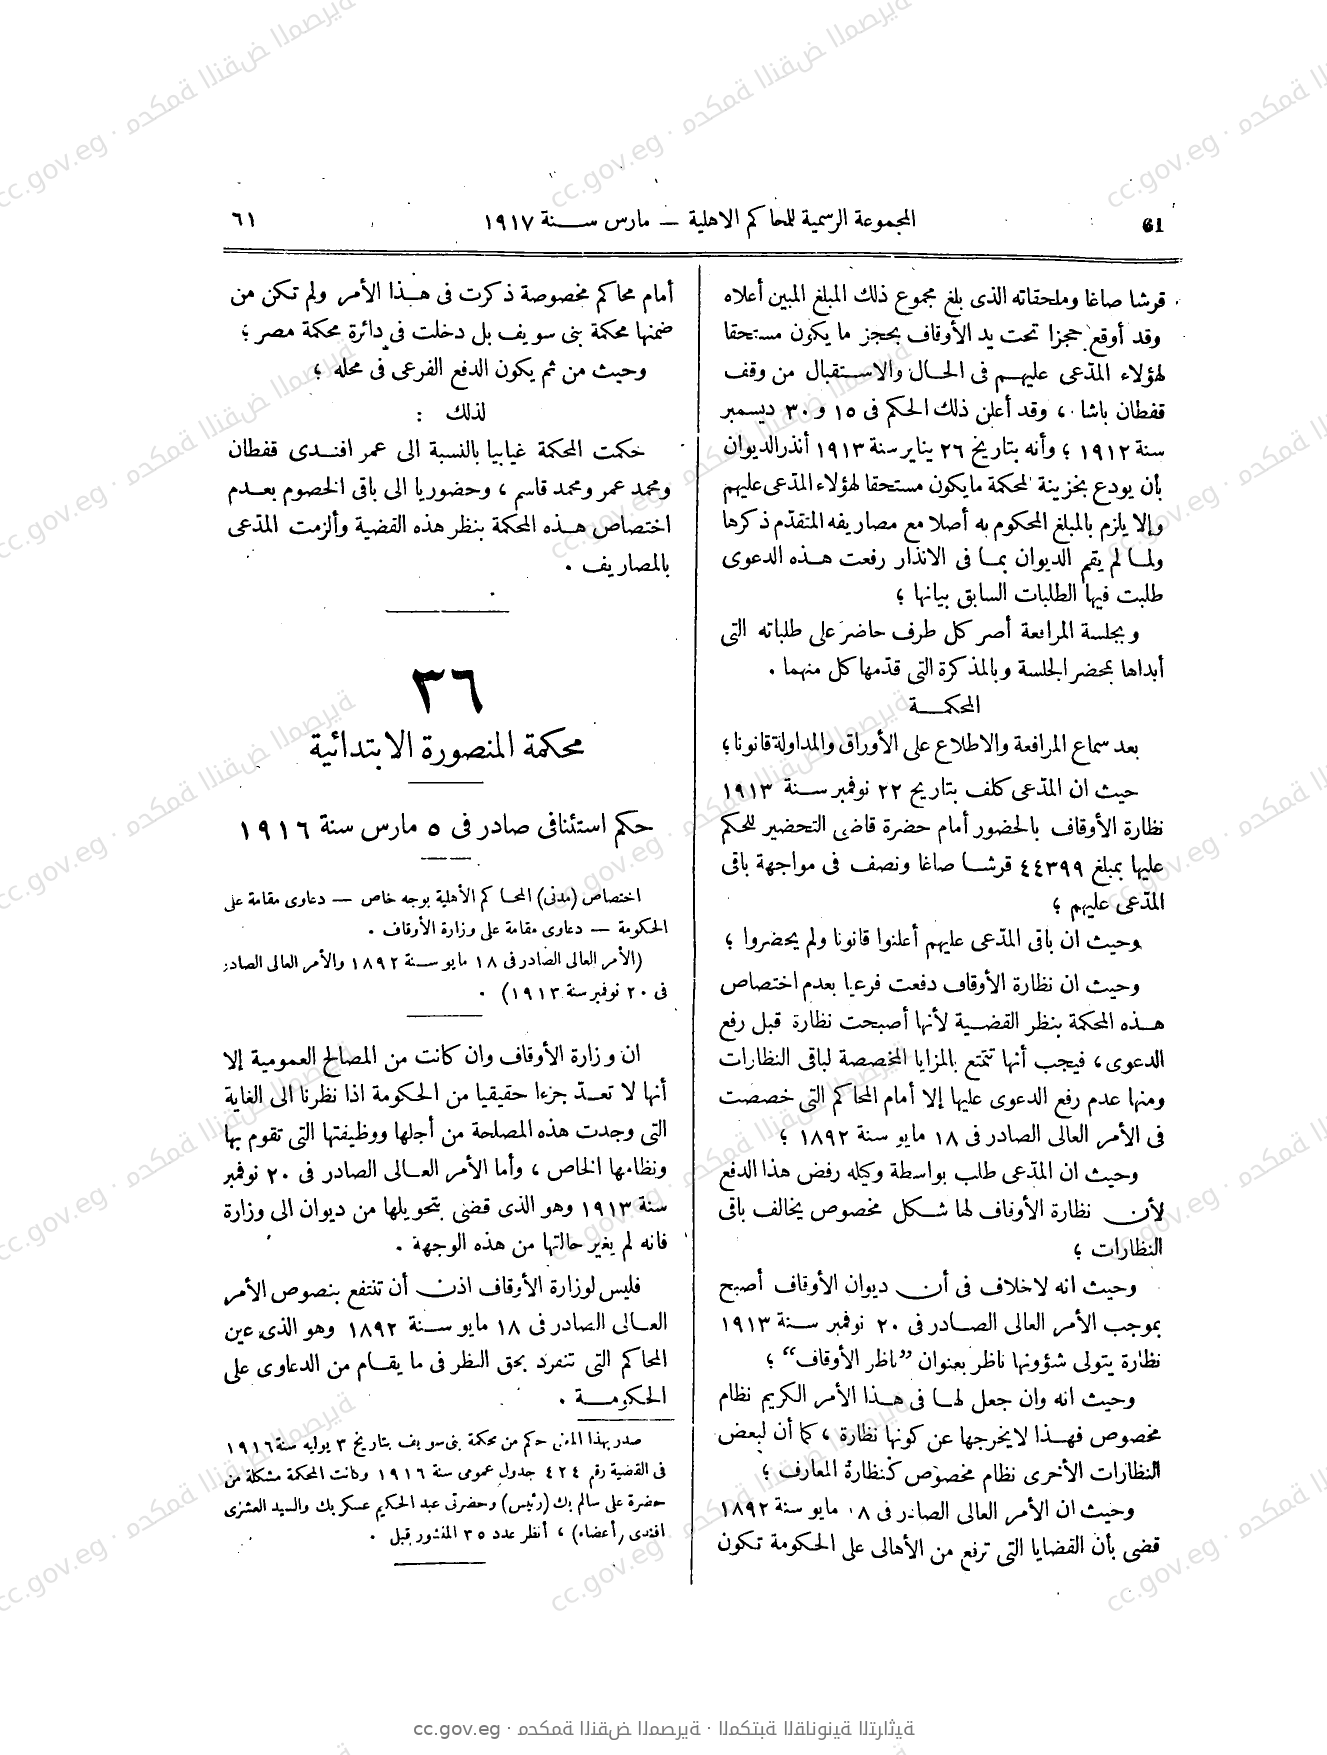 61
المجموعة الرسمية للمحاكم الاهلية — مارس سنة ١٩١٧
٦١
قرشا صاغا وملحقاته الذى بلغ مجموع ذلك المبلغ المبين أعلاه
وقد أوقع حجزا تحت يد الأوقاف بحجز ما يكون مستحقا
لهؤلاء المدّعى عليهم فى الحال والاستقبال من وقف
قفطان باشا ، وقد أعلن ذلك الحكم فى ١٥ و ٣٠ ديسمبر
سنة ١٩١٢ ؛ وأنه بتاريخ ٢٦ يناير سنة ١٩١٣ أنذر الديوان
بأن يودع بخزينة المحكمة مايكون مستحقا لهؤلاء المدّعى عليهم
وإلا يلزم بالمبلغ المحكوم به أصلا مع مصاريفه المتقدّم ذكرها
ولما لم يقم الديوان بما فى الانذار رفعت هذه الدعوى
طلبت فيها الطلبات السابق بيانها ؛
وبجلسة المرافعة أصر كل طرف حاضر على طلباته التى
أبداها بمحضر الجلسة وبالمذكرة التى قدّمها كل منهما .
المحكمة
بعد سماع المرافعة والاطلاع على الأوراق والمداولة قانونا ؛
حيث ان المدّعى كلف بتاريخ ٢٢ نوفمبر سنة ١٩١٣
نظارة الأوقاف بالحضور أمام حضرة قاضى التحضير للحكم
عليها بمبلغ ٤٤٣٩٩ قرشا صاغا ونصف فى مواجهة باقى
المدّعى عليهم ؛
وحيث ان باقى المدّعى عليهم أعلنوا قانونا ولم يحضروا ؛
وحيث ان نظارة الأوقاف دفعت فرعيا بعدم اختصاص
هذه المحكمة بنظر القضية لأنها أصبحت نظارة قبل رفع
الدعوى ، فيجب أنها تتمتع بالمزايا المخصصة لباقى النظارات
ومنها عدم رفع الدعوى عليها إلا أمام المحاكم التى خصصت
فى الأمر العالى الصادر فى ١٨ مايو سنة ١٨٩٢ ؛
وحيث ان المدّعى طلب بواسطة وكيله رفض هذا الدفع
لأن نظارة الأوقاف لها شكل مخصوص يخالف باقى
النظارات ؛
وحيث انه لاخلاف فى أن ديوان الأوقاف أصبح
بموجب الأمر العالى الصادر فى ٢٠ نوفمبر سنة ١٩١٣
نظارة يتولى شؤونها ناظر بعنوان ”ناظر الأوقاف“ ؛
وحيث انه وان جعل لها فى هذا الأمر الكريم نظام
مخصوص فهذا لايخرجها عن كونها نظارة ، كما أن لبعض
النظارات الأخرى نظام مخصوص كنظارة المعارف ؛
وحيث ان الأمر العالى الصادر فى ١٨ مايو سنة ١٨٩٢
قضى بأن القضايا التى ترفع من الأهالى على الحكومة تكون
أمام محاكم مخصوصة ذكرت فى هذا الأمر ولم تكن من
ضمنها محكمة بنى سويف بل دخلت فى دائرة محكمة مصر ؛
وحيث من ثم يكون الدفع الفرعى فى محله ؛
لذلك :
حكمت المحكمة غيابيا بالنسبة الى عمر افندى قفطان
ومحمد عمر ومحمد قاسم ، وحضوريا الى باقى الخصوم بعدم
اختصاص هذه المحكمة بنظر هذه القضية وألزمت المدّعى
بالمصاريف .
٣٦
محكمة المنصورة الابتدائية
حكم استئنافى صادر فى ٥ مارس سنة ١٩١٦
اختصاص (مدنى) المحاكم الأهلية بوجه خاص — دعاوى مقامة على
الحكومة — دعاوى مقامة على وزارة الأوقاف .
(الأمر العالى الصادر فى ١٨ مايو سنة ١٨٩٢ والأمر العالى الصادر
فى ٢٠ نوفمبر سنة ١٩١٣) .
ان وزارة الأوقاف وان كانت من المصالح العمومية إلا
أنها لا تعدّ جزءا حقيقيا من الحكومة اذا نظرنا الى الغاية
التى وجدت هذه المصلحة من أجلها ووظيفتها التى تقوم بها
ونظامها الخاص ، وأما الأمر العالى الصادر فى ٢٠ نوفمبر
سنة ١٩١٣ وهو الذى قضى بتحويلها من ديوان الى وزارة
فانه لم يغير حالتها من هذه الوجهة .
فليس لوزارة الأوقاف اذن أن تنتفع بنصوص الأمر
العالى الصادر فى ١٨ مايو سنة ١٨٩٢ وهو الذى عين
المحاكم التى تنفرد بحق النظر فى ما يقام من الدعاوى على
الحكومة .
صدر بهذا المعنى حكم من محكمة بنى سويف بتاريخ ٣ يوليه سنة ١٩١٦
فى القضية رقم ٤٢٤ جدول عمومى سنة ١٩١٦ وكانت المحكمة مشكلة من
حضرة على سالم بك (رئيس) وحضرتى عبد الحكيم عسكر بك والسيد العشرى
افندى (أعضاء) ، أنظر عدد ٣٥ المنشور قبل .
cc.gov.eg · محكمة النقض المصرية · المكتبة القانونية التراثية